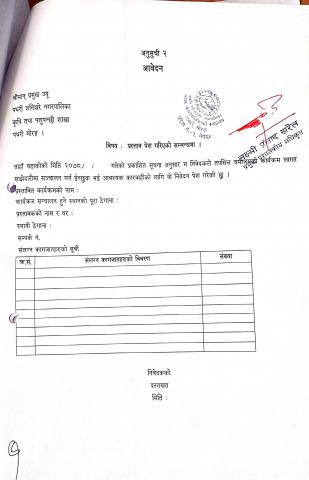 अनुसूची २
आवेदन
श्रीमान् प्रमुख ज्यू
पथरी शनिश्चरे नगरपालिका
कृषि तथा पशुपन्छी शाखा
पथरी मोरङ ।
विषय : प्रस्ताव पेश गरिएको सम्बन्धमा ।
तहाँ यहाकोको मिति २०७८/ / गतेको प्रकाशित सूचना अनुसार म निवेदकले तपशिल वमोजिमको कार्यक्रम लागत
साझेदारीमा सञ्चालन गर्न ईच्छुक भई आवश्यक कारवाहीको लागि यो निवेदन पेश गरेको छु ।
प्रस्तावित कार्यक्रमको नाम :
कार्यक्रम सञ्चालन हुने स्थानको पुरा ठेगाना :
प्रस्तावकको नाम र थर :
स्थायी ठेगाना :
सम्पर्क नं.
संलग्न कागजातहरुको सूची
क्र.सं. संलग्न कागजातहरुको विवरण संख्या
निवेदकको
दस्तखत
मिति :
प्रसाद खरेल
प्रमुख प्रशासकीय अधिकृत